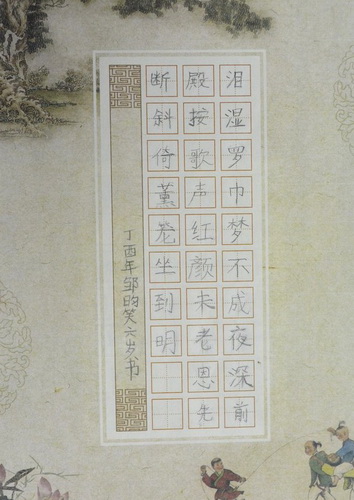 泪湿罗巾梦不成夜深前
殿按歌声红颜未老恩先
断斜倚薰笼坐到明
丁酉年邹昀笑六岁书